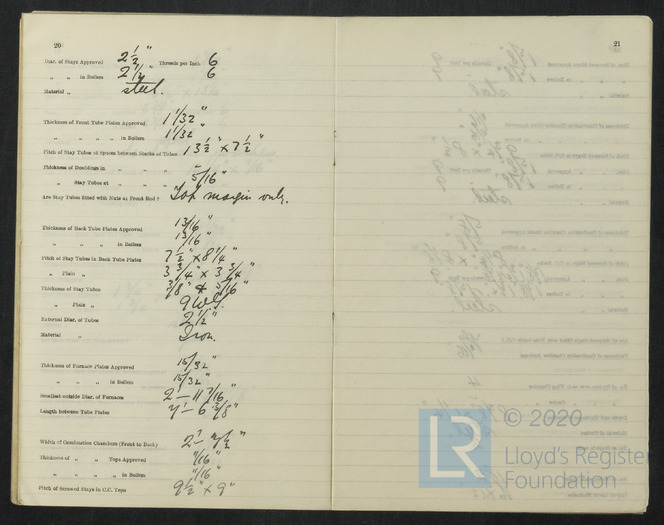 20
Diar. of Stays Approved 2 1/2" Threads per Inch 6
„ „ in Boilers 6
Material „ steel.
Thickness of Front Tube Plates Approved 1 1/32"
„ „ „ „ in Boilers 1 1/32"
Pitch of Stay Tubes at Spaces between Stacks of Tubes 13 1/2" x 7 1/2"
Thickness of Doublings in „ „ -
„ Stay Tubes at „ „ 5/16"
Are Stay Tubes fitted with Nuts at Front End? Top margin only.
Thickness of Back Tube Plates Approved 13/16"
„ „ „ „ in Boilers 13/16"
Pitch of Stay Tubes in Back Tube Plates 7 1/2" x 8 1/4"
„ Plain „ 3 3/4" x 3 3/4"
Thickness of Stay Tubes 3/8" & 5/16"
„ Plain „ 9 W.G.
External Diar. of Tubes 2 1/2"
Material „ Iron.
Thickness of Furnace Plates Approved 15/32"
„ „ „ in Boilers 15/32"
Smallest outside Diar. of Furnaces 2'-11 7/16"
Length between Tube Plates 7'-6 3/8"
Width of Combustion Chambers (Front to Back)
Thickness of „ „ Tops Approved 11/16"
„ „ „ „ in Boilers 11/16"
Pitch of Screwed Stays in C.C. Tops 9 1/2" x 9"
21
© 2020
LR
Lloyd's Register
Foundation